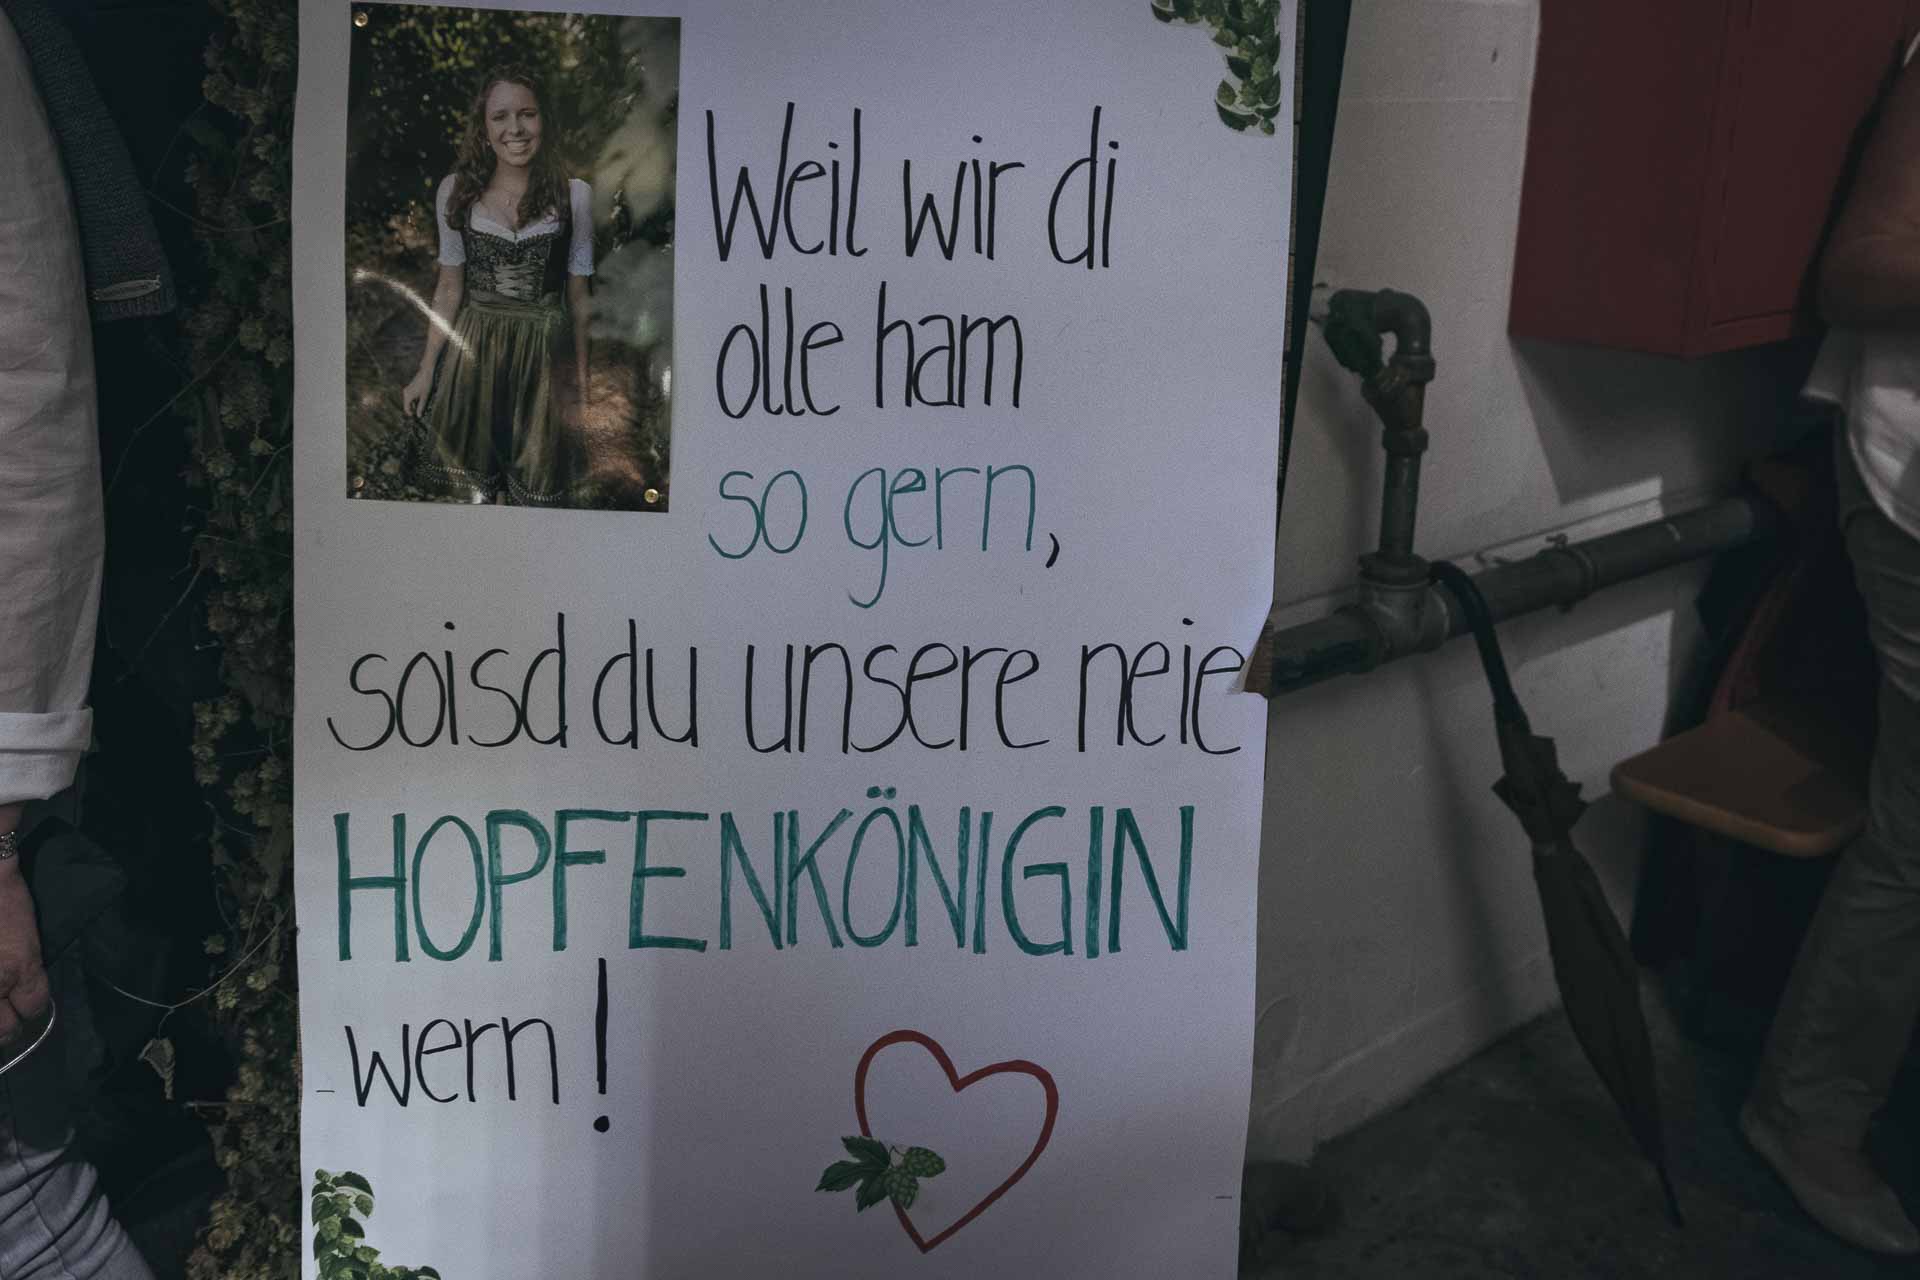 Weil wir di
olle ham
so gern,
soisd du unsere neie
HOPFENKÖNIGIN
wern!